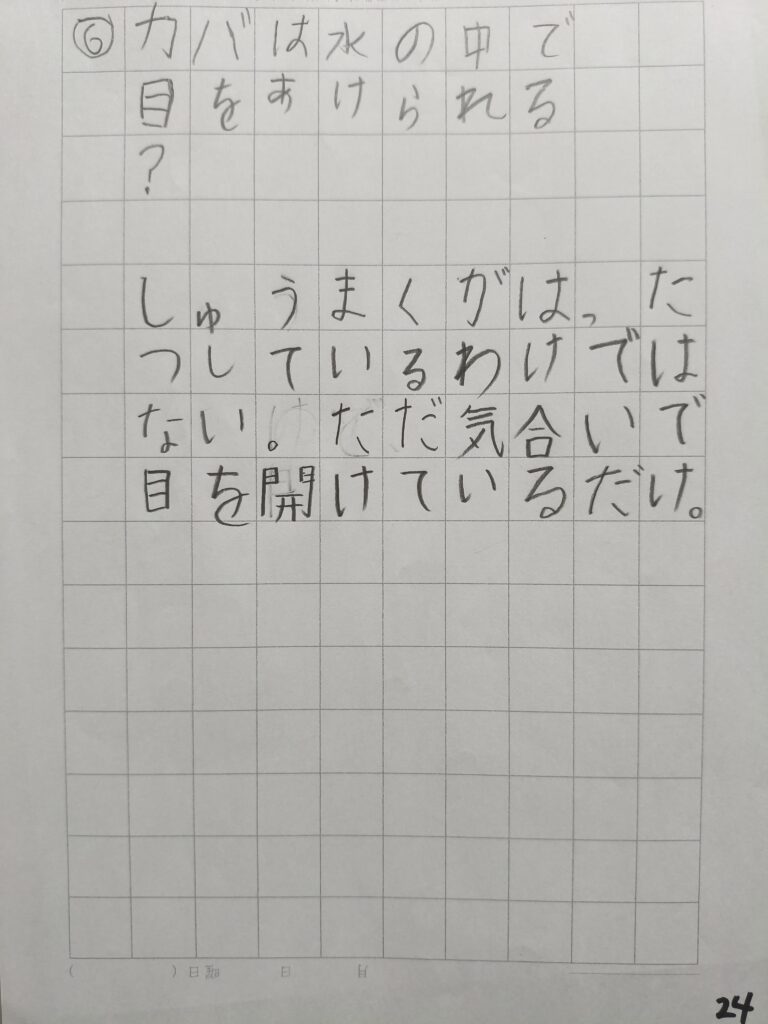 ⑥カバは水の中で
目をあけられる
?
しゅうまくがはった
つしているわけでは
ない。ただ気合いで
目を開けているだけ。
月 日 曜日( )
24